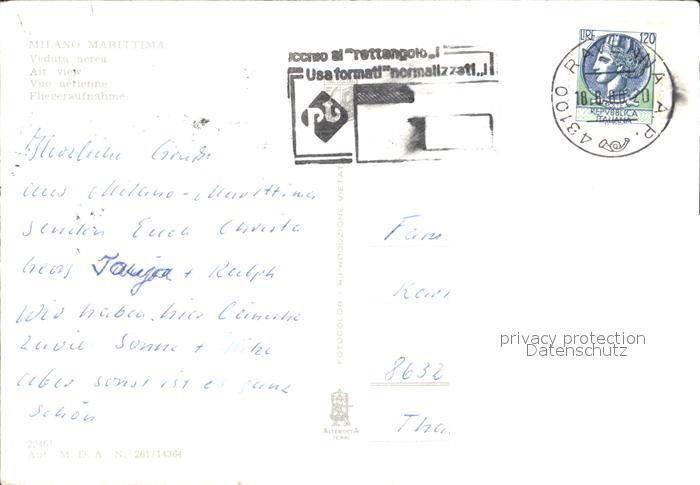 MILANO MARITTIMA
Veduta aerea
Air view
Vue aérienne
Fliegeraufnahme
occhio al "rettangolo„!
Usa formati "normalizzati„!
pt
LIRE 120
REPUBBLICA
ITALIANA
43100 RAVENNA A.P.
Herzliche Grüße
aus Milano-Marittima
senden Euch Christa
Tanja + Ralph
Wir haben hier beinahe
zuviel Sonne + Hitze
aber sonst ist es ganz
schön
FOTOCOLOR - RIPRODUZIONE VIETATA
Fam
Karl
8632
Tha
privacy protection
Datenschutz
ALTEROCCA
TERNI
22461
Aut. M. D. A. N. 261/14364